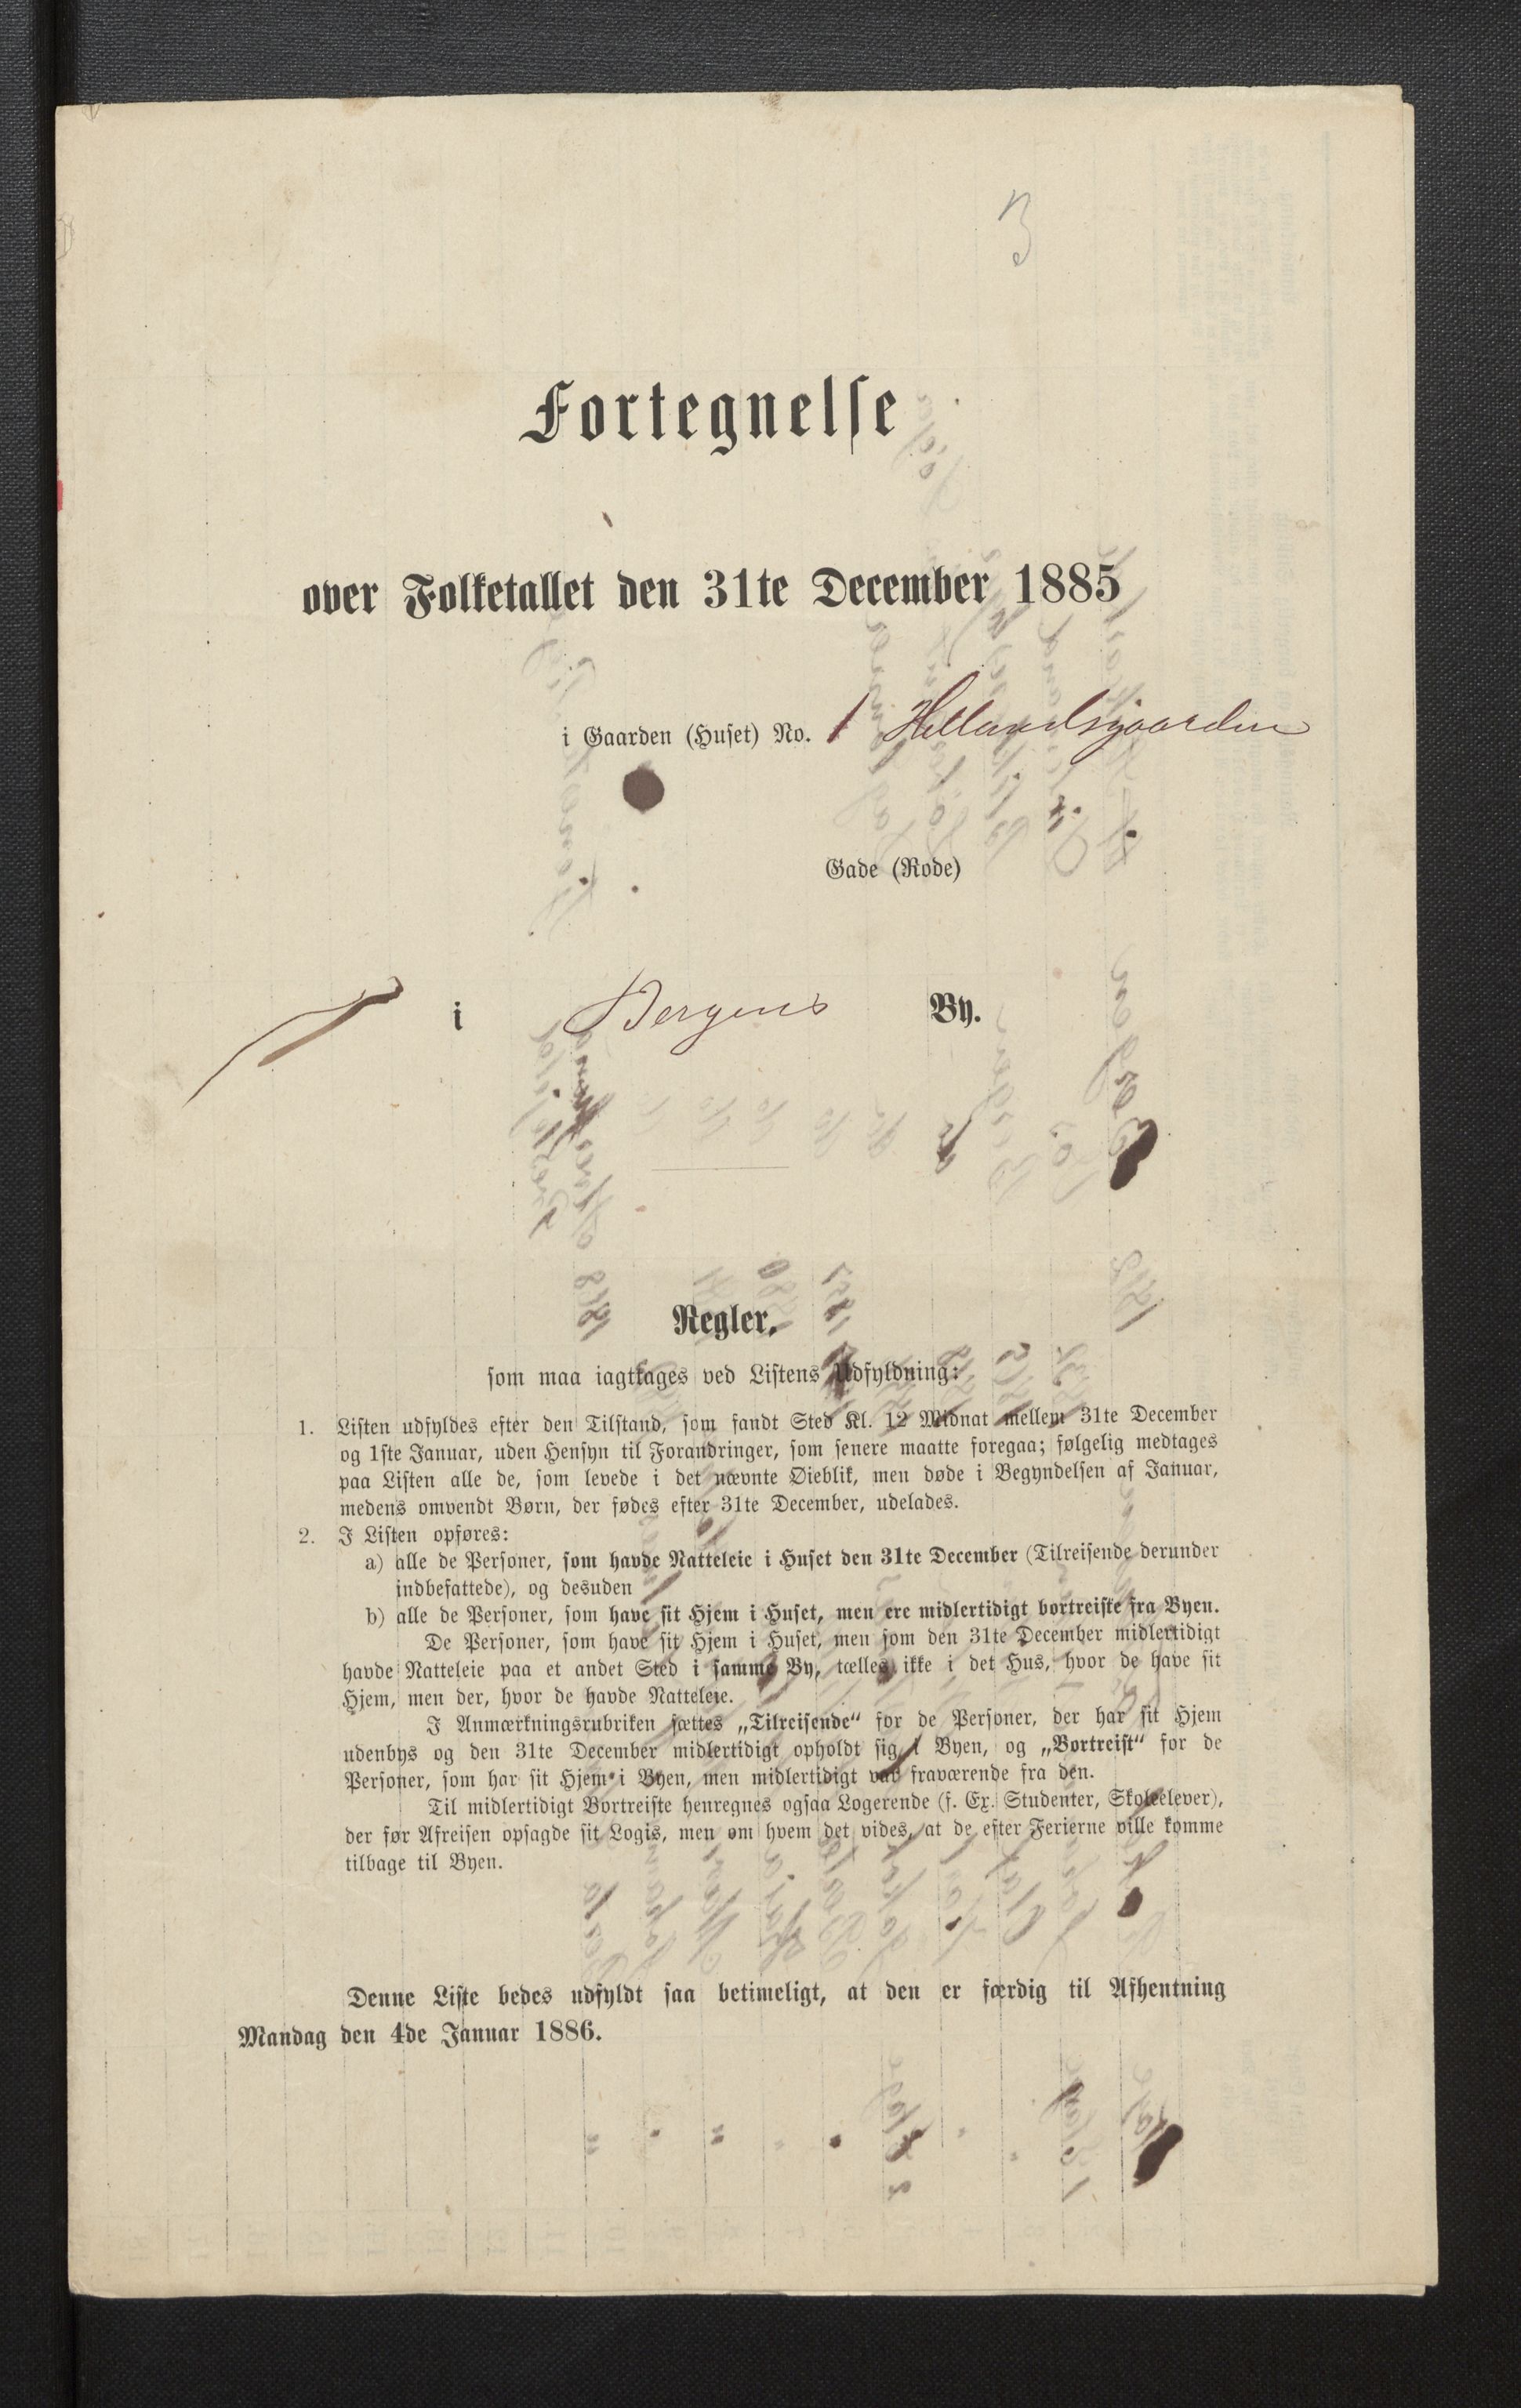 3
Fortegnelse
over Folketallet den 31te December 1885
i Gaarden (Huset) No. 1 Hellandsgaarden
Gade (Rode)
i Bergens By.
Regler,
som maa iagttages ved Listens Udfyldning:
1. Listen udfyldes efter den Tilstand, som fandt Sted Kl. 12 Midnat mellem 31te December
og 1ste Januar, uden Hensyn til Forandringer, som senere maatte foregaa; følgelig medtages
paa Listen alle de, som levede i det nævnte Øieblik, men døde i Begyndelsen af Januar,
medens omvendt Børn, der fødes efter 31te December, udelades.
2. I Listen opføres:
a) alle de Personer, som havde Natteleie i Huset den 31te December (Tilreisende derunder
indbefattede), og desuden
b) alle de Personer, som have sit Hjem i Huset, men ere midlertidigt bortreiste fra Byen.
De Personer, som have sit Hjem i Huset, men som den 31te December midlertidigt
havde Natteleie paa et andet Sted i samme By, tælles ikke i det Hus, hvor de have sit
Hjem, men der, hvor de havde Natteleie.
I Anmærkningsrubriken sættes „Tilreisende“ for de Personer, der har sit Hjem
udenbys og den 31te December midlertidigt opholdt sig i Byen, og „Bortreist“ for de
Personer, som har sit Hjem i Byen, men midlertidigt var fraværende fra den.
Til midlertidigt Bortreiste henregnes ogsaa Logerende (f. Ex. Studenter, Skoleelever),
der før Afreisen opsagde sit Logis, men om hvem det vides, at de efter Ferierne ville komme
tilbage til Byen.
Denne Liste bedes udfyldt saa betimeligt, at den er færdig til Afhentning
Mandag den 4de Januar 1886.